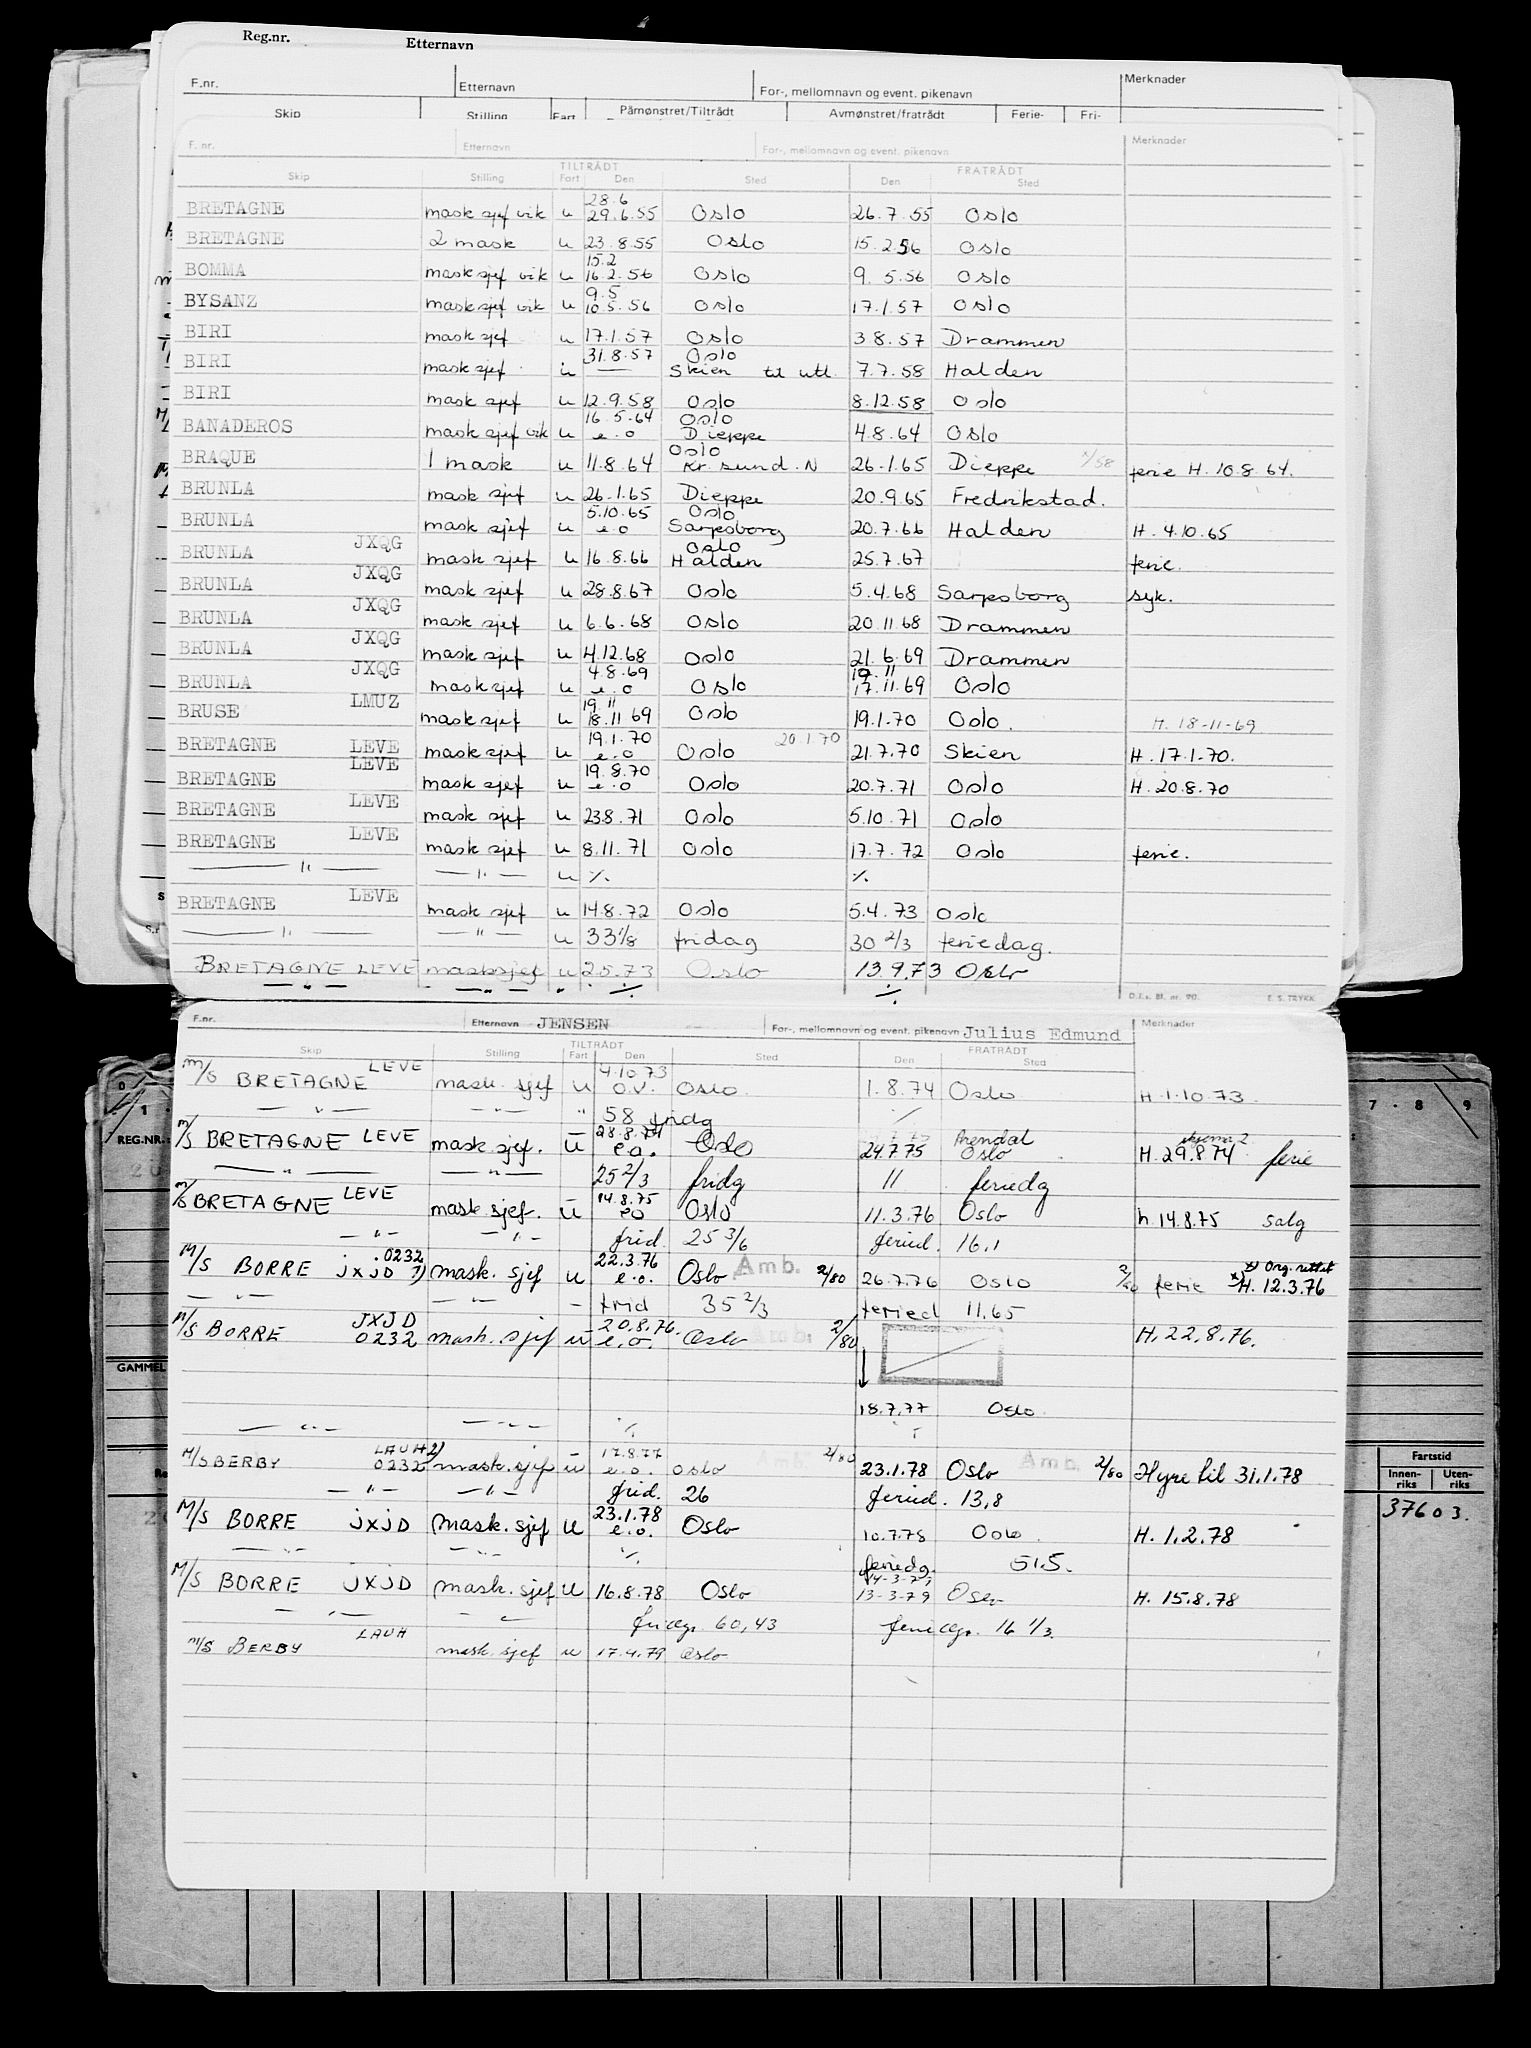 Reg.nr. Etternavn
F.nr. Etternavn For-, mellomnavn og event. pikenavn Merknader
Skip Stilling Fart Påmønstret/Tiltrådt Avmønstret/fratrådt Ferie- Fri-
F. nr. Etternavn For-, mellomnavn og event. pikenavn Merknader
TILTRÅDT FRATRÅDT
Skip Stilling Fart Den Sted Den Sted
28.6
BRETAGNE mask sjef vik u 29.6.55 Oslo 26.7.55 Oslo
BRETAGNE 2 mask u 23.8.55 Oslo 15.2.56 Oslo
15.2
BOMMA mask sjef vik u 16.2.56 Oslo 9.5.56 Oslo
9.5
BYSANZ mask sjef vik u 10.5.56 Oslo 17.1.57 Oslo
BIRI mask sjef u 17.1.57 Oslo 3 8.57 Drammen
31.8.57 Oslo
BIRI mask sjef u — Skien til utl. 7.7.58 Halden
BIRI mask sjef u 12.9.58 Oslo 8.12.58 Oslo
16.5.64 Oslo
BANADEROS mask sjef vik u e.o Dieppe 4.8.64 Oslo
Oslo
BRAQUE 1 mask u 11.8.64 Kr.sund.N 26.1.65 Dieppe ferie H. 10.8.64.
BRUNLA mask sjef u 26.1.65 Dieppe 20.9.65 Fredrikstad.
5.10.65 Oslo
BRUNLA mask sjef u e.o Sarpsborg 20.7.66 Halden H. 4.10.65
JXQG Oslo
BRUNLA mask sjef u 16.8.66 Halden 25.7.67 ferie.
JXQG
BRUNLA mask sjef u 28.8.67 Oslo 5.4.68 Sarpsborg syk.
JXQG
BRUNLA mask sjef u 6.6.68 Oslo 20.11.68 Drammen
JXQG
BRUNLA mask sjef u 4.12.68 Oslo 21.6.69 Drammen
JXQG 4.8.69 19.11
BRUNLA mask sjef u e.o Oslo 17.11.69 Oslo
LMUZ 19.11
BRUSE mask sjef u 18.11 69 Oslo 19.1.70 Oslo. H. 18-11-69
19.1.70 20.1.70
BRETAGNE LEVE mask sjef u e.o Oslo 21.7.70 Skien H. 17.1.70.
LEVE 19.8.70
BRETAGNE mask sjef u e.o Oslo 20.7.71 Oslo H. 20.8.70
BRETAGNE LEVE mask sjef u 23.8.71 Oslo 5.10.71 Oslo
BRETAGNE LEVE mask sjef u 8.11.71 Oslo 17.7.72 Oslo ferie.
— " — — " — u ⁒ ⁒
BRETAGNE LEVE mask sjef u 14.8.72 Oslo 5.4.73 Oslo
— " — — " — u 33 1/8 fridag 30 2/3 feriedag.
BRETAGNE LEVE masksjef u 2.5.73 Oslo 13.9.73 Oslo
— " — — " — " ⁒ ⁒
D.f.s. Bl. nr. 90. E. S. TRYKK
F.nr. Etternavn JENSEN For-, mellomnavn og event. pikenavn Julius Edmund Merknader
TILTRÅDT FRATRÅDT
Skip Stilling Fart Den Sted Den Sted
LEVE 4.10.73
M/S BRETAGNE mask. sjef u o.v. Oslo. 1.8.74 Oslo H.1.10.73.
— " — — " — " 58 fridg ⁒
28.8.74 Arendal skjema 2
M/S BRETAGNE LEVE mask. sjef. u e.o. Oslo 24.7.75 Oslo H. 29.8.74 ferie
— " — — " — 25 2/3 fridg 11 feriedg
14.8.75
M/S BRETAGNE LEVE mask. sjef. u eo Oslo 11.3.76 Oslo h. 14.8.75 salg
— " — — " — frid. 25 3/6 feried. 16,1
.0232 22.3.76 Org. rettet
M/S BORRE JXJD 1) mask. sjef u e.o. Oslo. Amb. 2/80 26.7.76 Oslo ferie H. 12.3.76
— " — — " — — frid 35 2/3 feried 11,65
JXJD 20.8.76.
M/S BORRE 0232 mask. sjef u e.o. Oslo Amb. 2/80 H. 22.8.76.
18.7.77 Oslo
— " — — " — ⁒ ⁒
LAUH 2) 17.8.77
M/S BERBY 0232 mask. sjef u e.o. oslo Amb. 2/80 23.1.78 Oslo Amb. 2/80 Hyre til 31.1.78
— " — — " — frid. 26 feried. 13,8
23.1.78
M/S BORRE JXJD Mask. sjef U e.o. Oslo 10.7.78 Oslo H. 1.2.78
— " — — " — ⁒ feriedg. 51.5.
14-3-79
M/S BORRE JXJD mask. sjef U 16.8.78 Oslo 13-3-79 Oslo H. 15.8.78
— " — — " — fridgr. 60,43 feriedgr. 16 1/3.
LAUH
M/S BERBY mask. sjef u 17.4.79 Oslo
REG.NR.
GAMMEL
7 - 8 9
Fartstid
Innen-riks Uten-riks
37603.